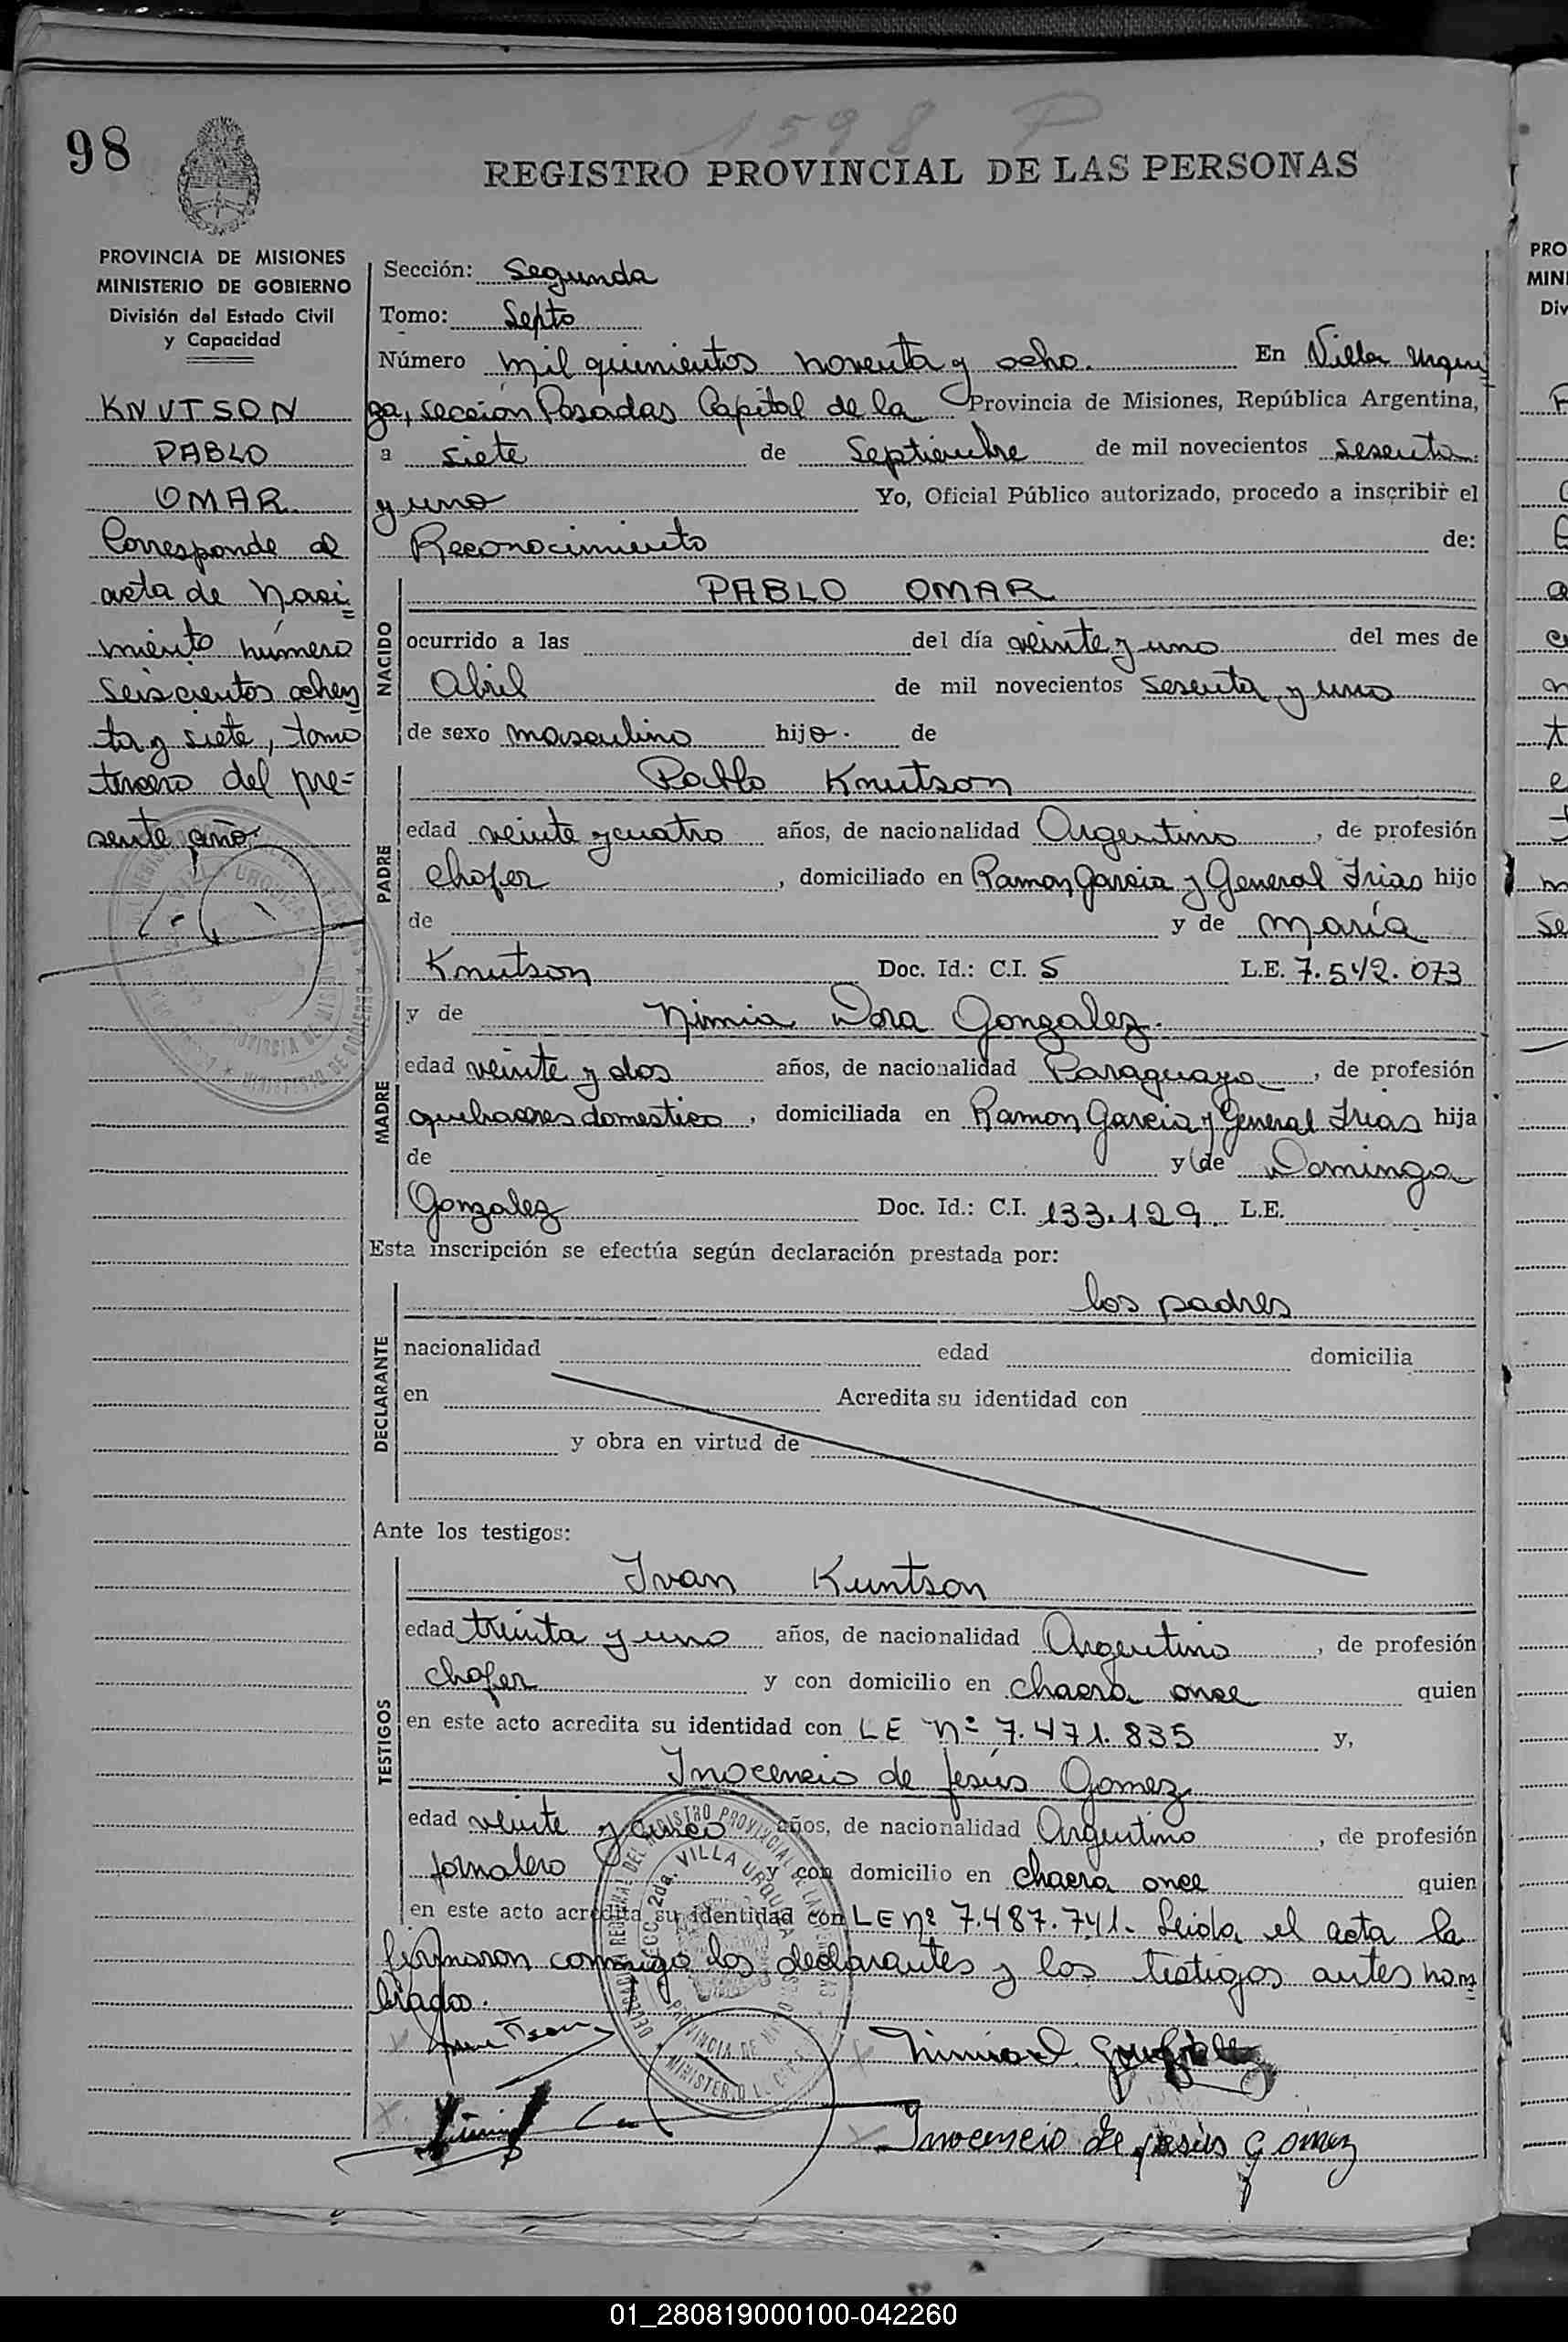 1598 P
98
REGISTRO PROVINCIAL DE LAS PERSONAS
PROVINCIA DE MISIONES
MINISTERIO DE GOBIERNO
División del Estado Civil
y Capacidad
KNUTSON
PABLO
OMAR
Corresponde al
acta de Naci=
miento número
seiscientos ochen
ta y siete, tomo
tercero del pre=
sente año
Sección: Segunda
Tomo: Septo
Número mil quinientos noventa y ocho. En Villa Urqui=
za, sección Posadas Capital de la Provincia de Misiones, República Argentina,
a siete de Septiembre de mil novecientos sesenta
y uno Yo, Oficial Público autorizado, procedo a inscribir el
Reconocimiento de:
NACIDO
PABLO OMAR
ocurrido a las del día veinte y uno del mes de
Abril de mil novecientos sesenta y uno
de sexo masculino hijo. de
PADRE
Pablo Knutson
edad veinte y cuatro años, de nacionalidad Argentino, de profesión
chofer, domiciliado en Ramon Garcia y General Frias hijo
de y de María
Knutson Doc. Id.: C.I. S L.E. 7.542.073
MADRE
y de Nimia Dora Gonzalez.
edad veinte y dos años, de nacionalidad Paraguaya, de profesión
quehaceres domestico, domiciliada en Ramon Garcia y General Frias hija
de y de Dominga
Gonzalez Doc. Id.: C.I. 133.129. L.E.
Esta inscripción se efectúa según declaración prestada por:
DECLARANTE
los padres
nacionalidad edad domicilia
en Acredita su identidad con
y obra en virtud de
Ante los testigos:
TESTIGOS
Ivan Kuntson
edad treinta y uno años, de nacionalidad Argentino, de profesión
chofer y con domicilio en chacra once quien
en este acto acredita su identidad con LE Nº 7.471.835 y,
Inocencio de Jesús Gomez
edad veinte y cinco años, de nacionalidad Argentino, de profesión
jornalero y con domicilio en chacra once quien
en este acto acredita su identidad con LE nº 7.487.741. Leida el acta la
firmaron conmigo los declarantes y los testigos antes nom=
brados.
SECC. 2da. VILLA URQUIZA
PROVINCIA DE MISIONES
Inocencio de jesús gomez
PRO
MINI
Div
01_280819000100-042260